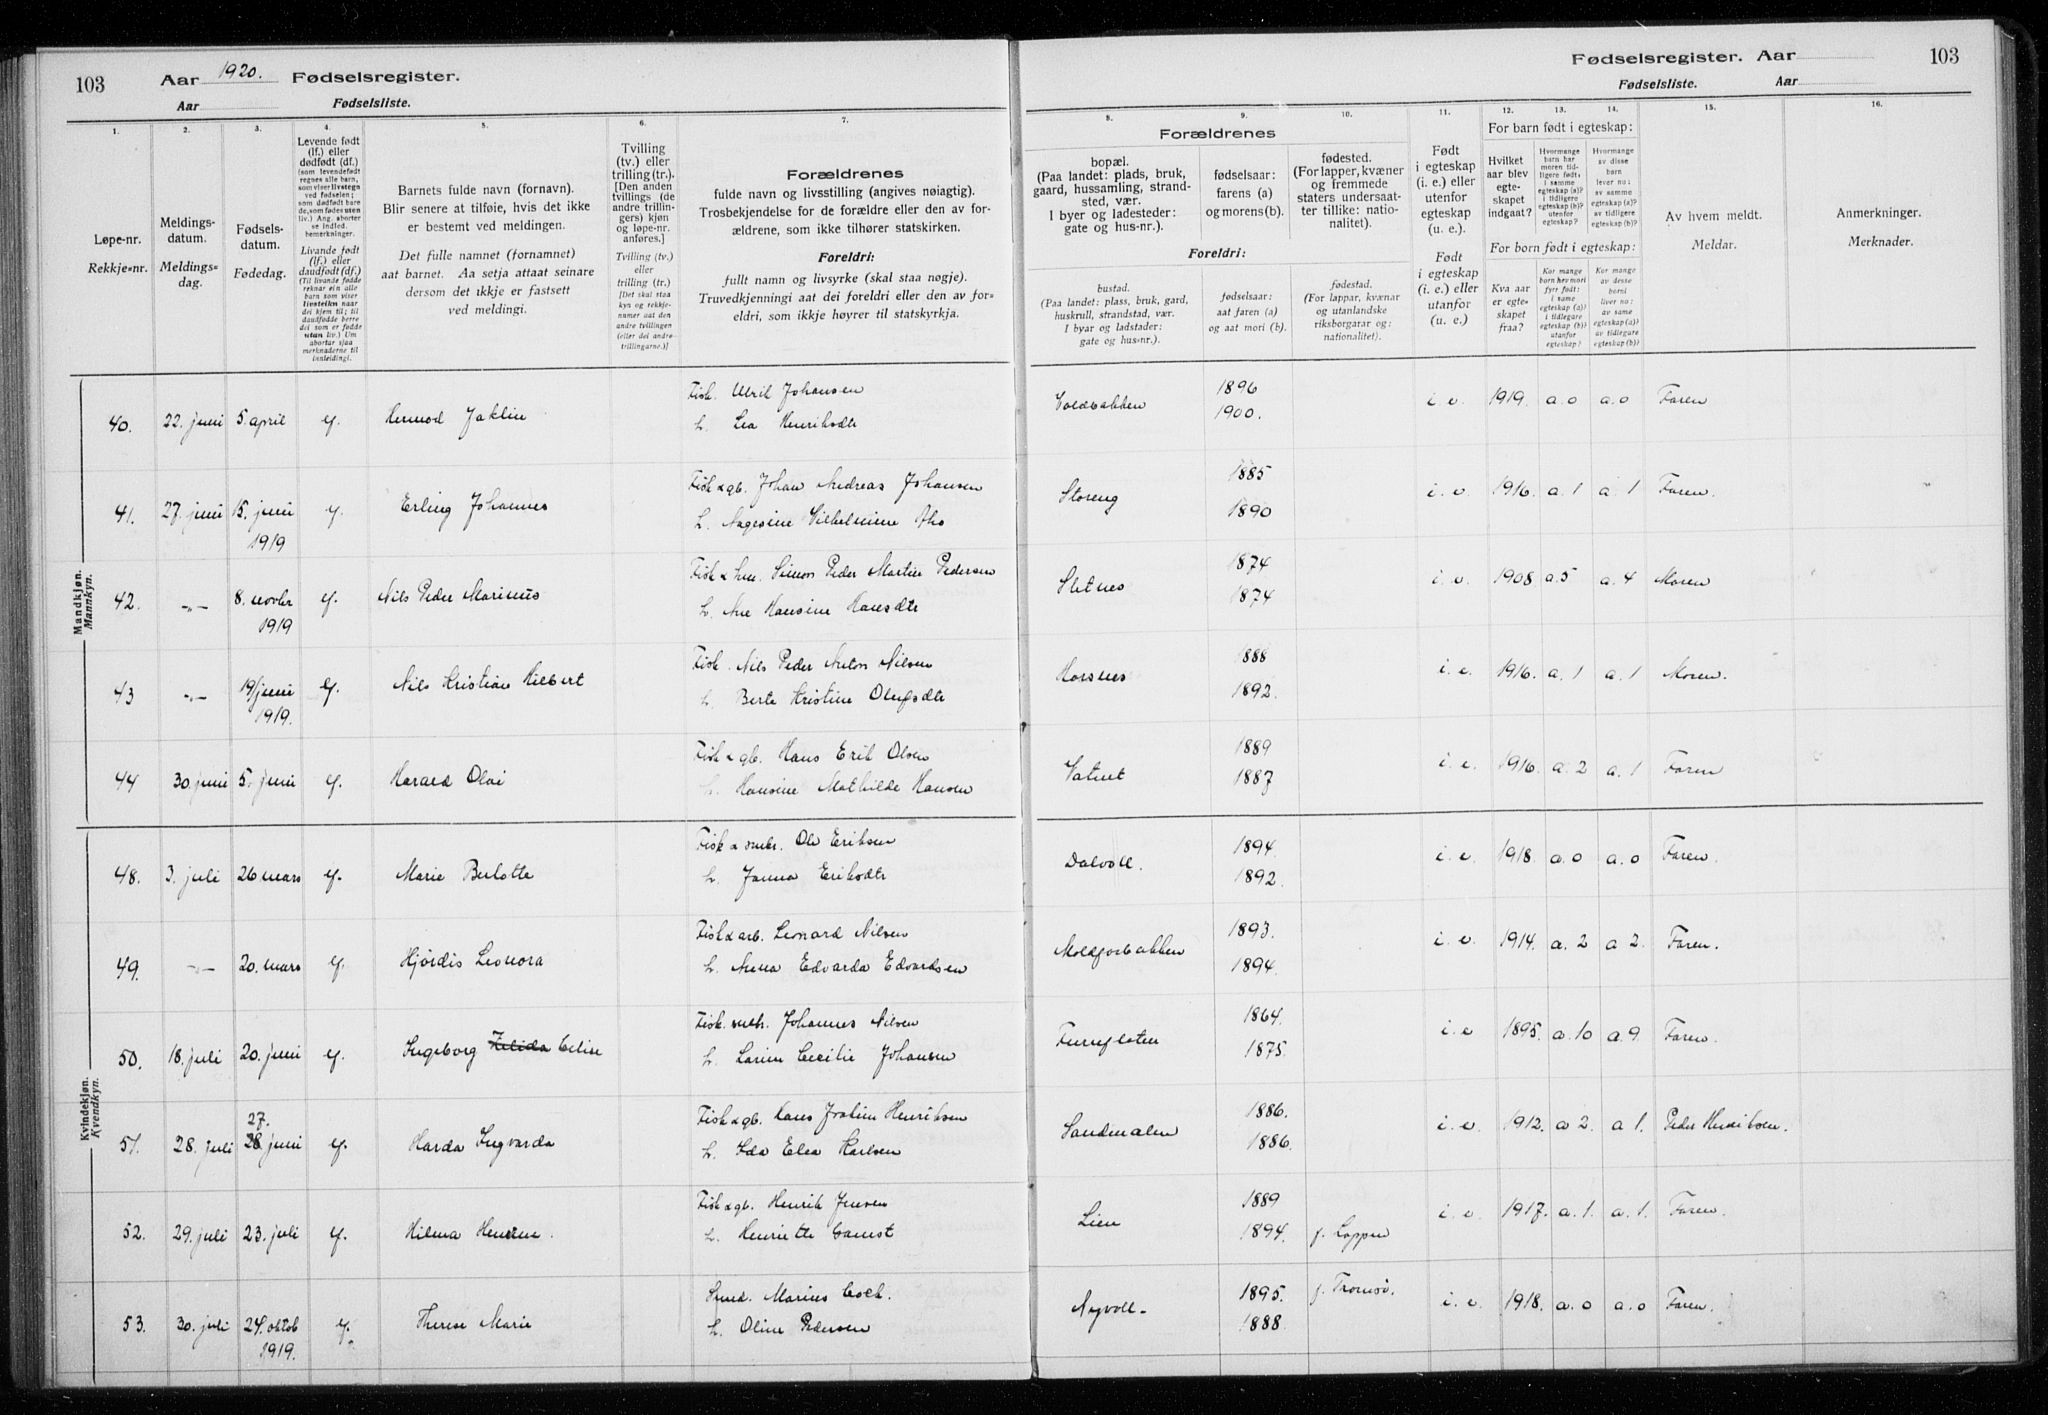 103 Aar 1920. Fødselsregister.
Aar Fødselsliste.
Fødselsregister. Aar 103
Fødselsliste. Aar
1. 2. 3. 4. 5. 6. 7.
Løpe-nr.
Rekkje-nr.
Meldings-
datum.
Meldings-
dag.
Fødsels-
datum.
Fødedag.
Levende født
(lf.) eller
dødfødt (df.)
(som levendefødt
regnes alle barn,
som viser livstegn
ved fødselen;
som dødfødt bare
de, som fødes uten
liv.) Ang. aborter
se indled.
bemerkninger.
Livande født
(lf.) eller
daudfødt (df.)
(Til livande fødde
reknar ein alle
barn som viser
livsteikn naar
dei kjem til; til
daudfødde berre
dei som er fødde
utan liv.) Um
abortar sjaa
merknaderne til
innleidingi.
Barnets fulde navn (fornavn).
Blir senere at tilføie, hvis det ikke
er bestemt ved meldingen.
Det fulle namnet (fornamnet)
aat barnet. Aa setja attaat seinare
dersom det ikkje er fastsett
ved meldingi.
Tvilling
(tv.) eller
trilling (tr.).
[Den anden
tvillings (de
andre trillin-
gers) kjøn
og løpe-nr.
anføres.]
Tvilling (tv.)
eller
trilling (tr.)
[Det skal staa
kyn og rekkje-
numer aat den
andre tvillingen
(eller dei andre
trillingarne.)]
Forældrenes
fulde navn og livsstilling (angives nøiagtig).
Trosbekjendelse for de forældre eller den av for-
ældrene, som ikke tilhører statskirken.
Foreldri:
fullt namn og livsyrke (skal staa nøgje).
Truvedkjenningi aat dei foreldri eller den av for-
eldri, som ikkje høyrer til statskyrkja.
8. 9. 10. 11. 12. 13. 14. 15. 16.
Forældrenes
bopæl.
(Paa landet: plads, bruk,
gaard, hussamling, strand-
sted, vær.
I byer og ladesteder:
gate og hus-nr.).
Foreldri:
bustad.
(Paa landet: plass, bruk, gard,
huskrull, strandstad, vær.
I byar og ladstader:
gate og hus-nr.).
fødselsaar:
farens (a)
og morens (b).
fødselsaar:
aat faren (a)
og aat mori (b).
fødested.
(For lapper, kvæner
og fremmede
staters undersaat-
ter tillike: natio-
nalitet).
fødestad.
(For lappar, kvænar
og utanlandske
riksborgarar og:
nationalitet).
Født
i egteskap
(i. e.) eller
utenfor
egteskap
(u. e.).
Født
i egteskap
(i. e.) eller
utanfor
(u. e.)
For barn født i egteskap:
Hvilket
aar blev
egte-
skapet
indgaat?
Hvormange
barn har
moren tid-
ligere født:
i samme
egteskap (a)?
i tidligere
egteskap (b)?
utenfor
egteskap?
Hvormange
av disse
barn
lever nu:
av samme
egteskap (a)?
av tidligere
egteskap (b)?
For born født i egteskap:
Kva aar
er egte-
skapet
fraa?
Kor mange
born hev mori
fyrr født:
i same
egteskap (a)?
i tidlegare
egteskap (b)?
utanfor
egteskap?
Kor mange
av desse
borni
liver no:
av same
egteskap (a)?
av tidlegare
egteskap (b)?
Av hvem meldt.
Meldar.
Anmerkninger.
Merknader.
Mandkjøn.
Mannkyn.
40. 22. juni 5. april lf. Hermod Jaklin Fisk. Ulrik Johansen 1896 i. e. 1919. a. 0 a. 0 Faren
h. Lea Henriksdtr 1900.
41. 27. juni 15. juni lf. Erling Johannes Fisk & gb. Johan Andreas Johansen Storeng 1885 i. e. 1916. a. 1 a. 1 Faren.
1919 h. Aagesine Vilhelmine 1890
42. -"- 8. novbr lf. Nils Peder Marinus Fisk & Simon Peder Martin Pedersen Sletnes 1874 i. e. 1908 a. 5 a. 4 Moren
1919 h. Ane Hansine Hansdtr 1874
43 -"- 19/juni lf. Nils Kristian Hilbert Fisk. Nils Peder Anton Nilsen Horsnes 1888 i. e. 1916. a. 1 a. 1 Moren.
1919. h. Berte Kristine Olufsdtr 1892.
44 30. juni 5. juni lf. Harald Olai Fisk & gb. Hans Erik Olsen Vatnet 1889 i. e. 1916. a. 2 a. 1 Faren
h. Hansine Mathilde Hansen 1887
Kvindekjøn.
Kvendkyn.
48. 3. juli 26 mars lf. Marie Berlotte Fisk & smbr. Ole Eriksen Dalvoll. 1894. i. e. 1918. a. 0 a. 0 Faren.
h. Janna Eriksdtr 1892.
49. -"- 20. mars lf. Hjørdis Leonora Fisk & arb. Leonard Nilsen 1893. i. e. 1914. a. 2 a 2. Faren.
h. Anna Edvarda Edvardsen 1894.
50. 18. juli 20. juni lf. Ingeborg Celine Fisk. smbr. Johannes Nilsen Furuflaten 1864. i. e 1895. a. 10 a. 9. Faren.
h. Larine Cecilie Johansen 1875.
27.
51. 28. juli 28 juni lf. Harda Ingvarda Fisk & gb. Hans Joakim Henriksen Sandmælen 1886. i. e. 1912. a 2. a 1. Peder Henriksen.
h. Ida Elea Karlsen 1886.
52. 29. juli 23. juli lf. Hilma Fisk & gb. Henrik Jensen Lien 1889 i. e. 1917. a. 1. a. 1. Faren.
h. Henriette Gamst 1894. f. Loppen
53. 30. juli 24. oktob lf. Therese Marie Smed. Marius Coch. Nyvoll 1895. f. Tromsö. i. e. 1918. a. 0 a. 0 Faren.
1919. h. Oline Pedersen 1888.